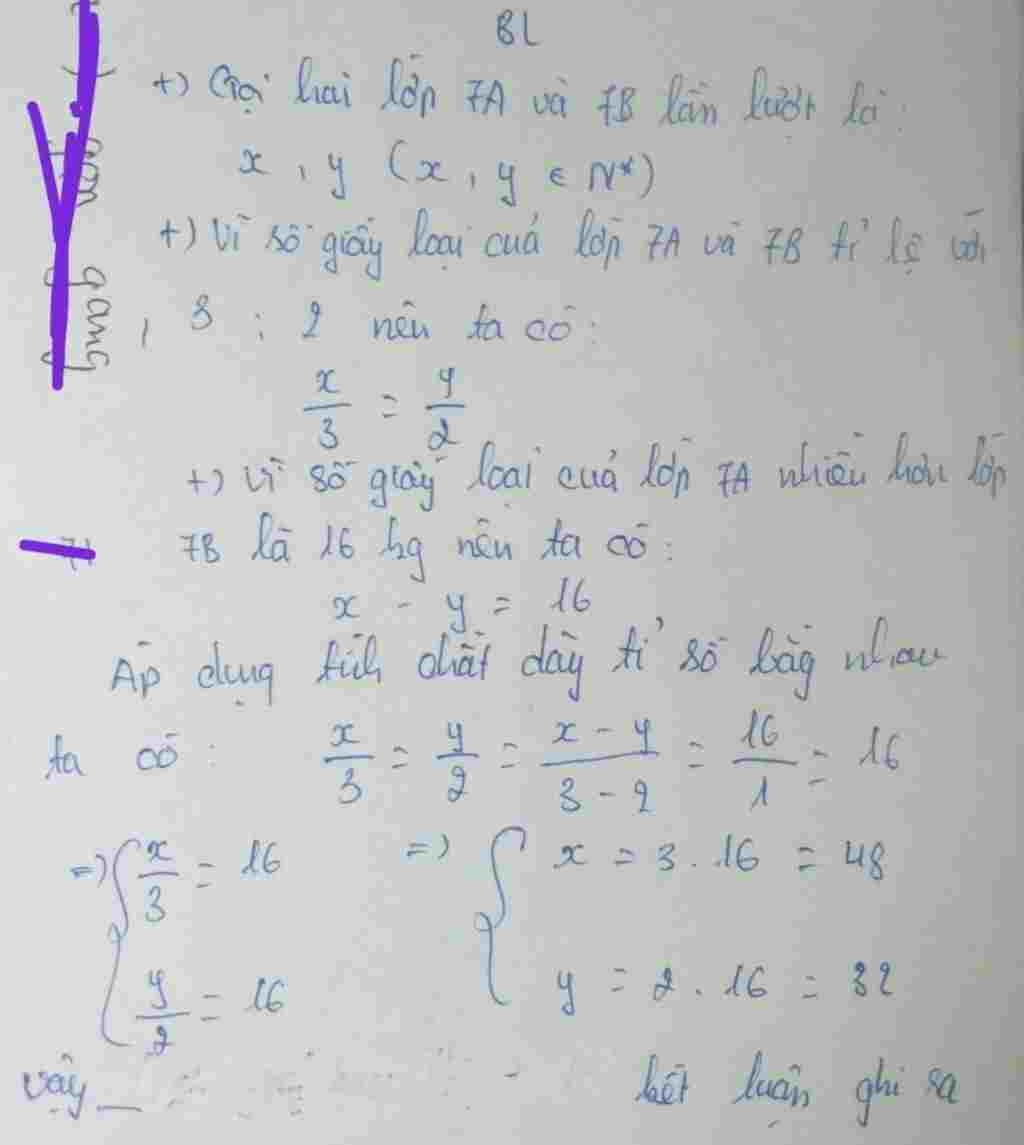 BL
+) Gọi hai lớp 7A và 7B lần lượt là:
x, y (x, y ∈ N*)
+) Vì số giấy loại của lớp 7A và 7B tỉ lệ với
3 : 2 nên ta có:
x/3 = y/2
+) Vì số giấy loại của lớp 7A nhiều hơn lớp
7B là 16 kg nên ta có:
x - y = 16
Áp dụng tích chất dãy tỉ số bằg nhau
ta có: x/3 = y/2 = (x - y)/(3 - 2) = 16/1 = 16
=> { x/3 = 16 => { x = 3 . 16 = 48
y/2 = 16 y = 2 . 16 = 32
vậy kết luận ghi ra
gang